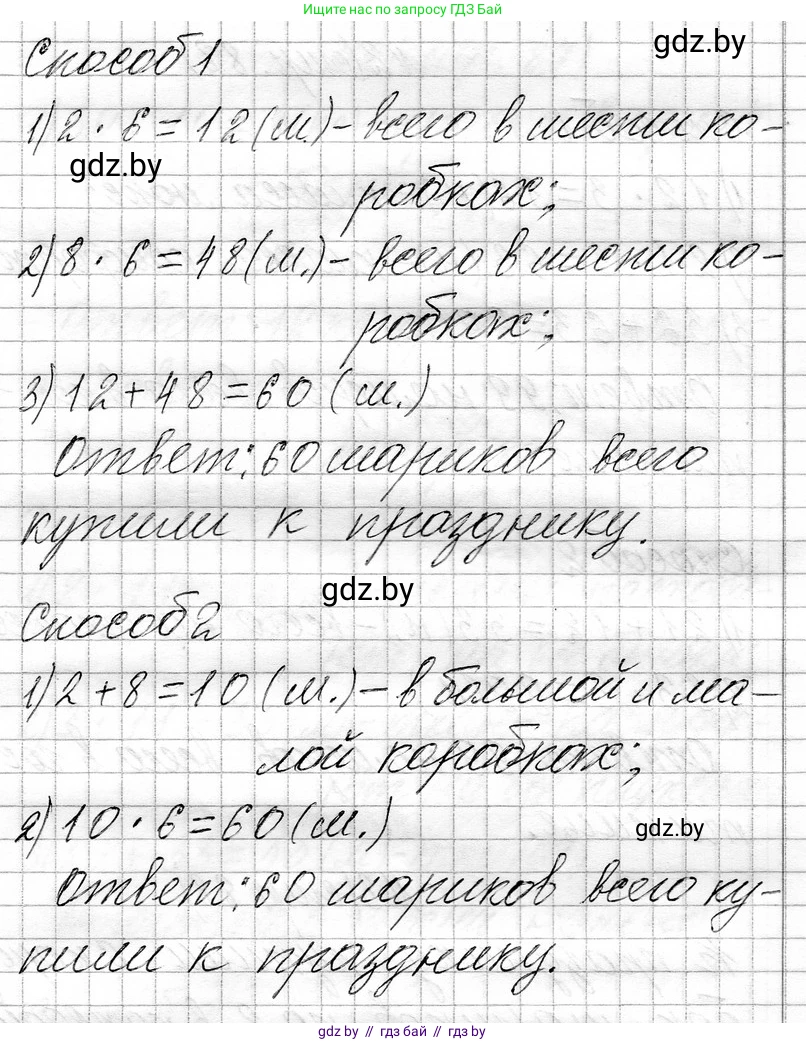 Ищите нас по запросу ГДЗ Бай
Способ 1
gdz.by
1) 2 · 6 = 12 (ш.) - всего в шести ко-
gdz.by
робках;
2) 8 · 6 = 48 (ш.) - всего в шести ко-
робках;
3) 12 + 48 = 60 (ш.)
Ответ: 60 шариков всего
купили к празднику.
gdz.by
Способ 2
1) 2 + 8 = 10 (ш.) - в большой и ма-
лой коробках;
2) 10 · 6 = 60 (ш.)
gdz.by
Ответ: 60 шариков всего ку-
пили к празднику.
gdz by // гдз бай // gdz by